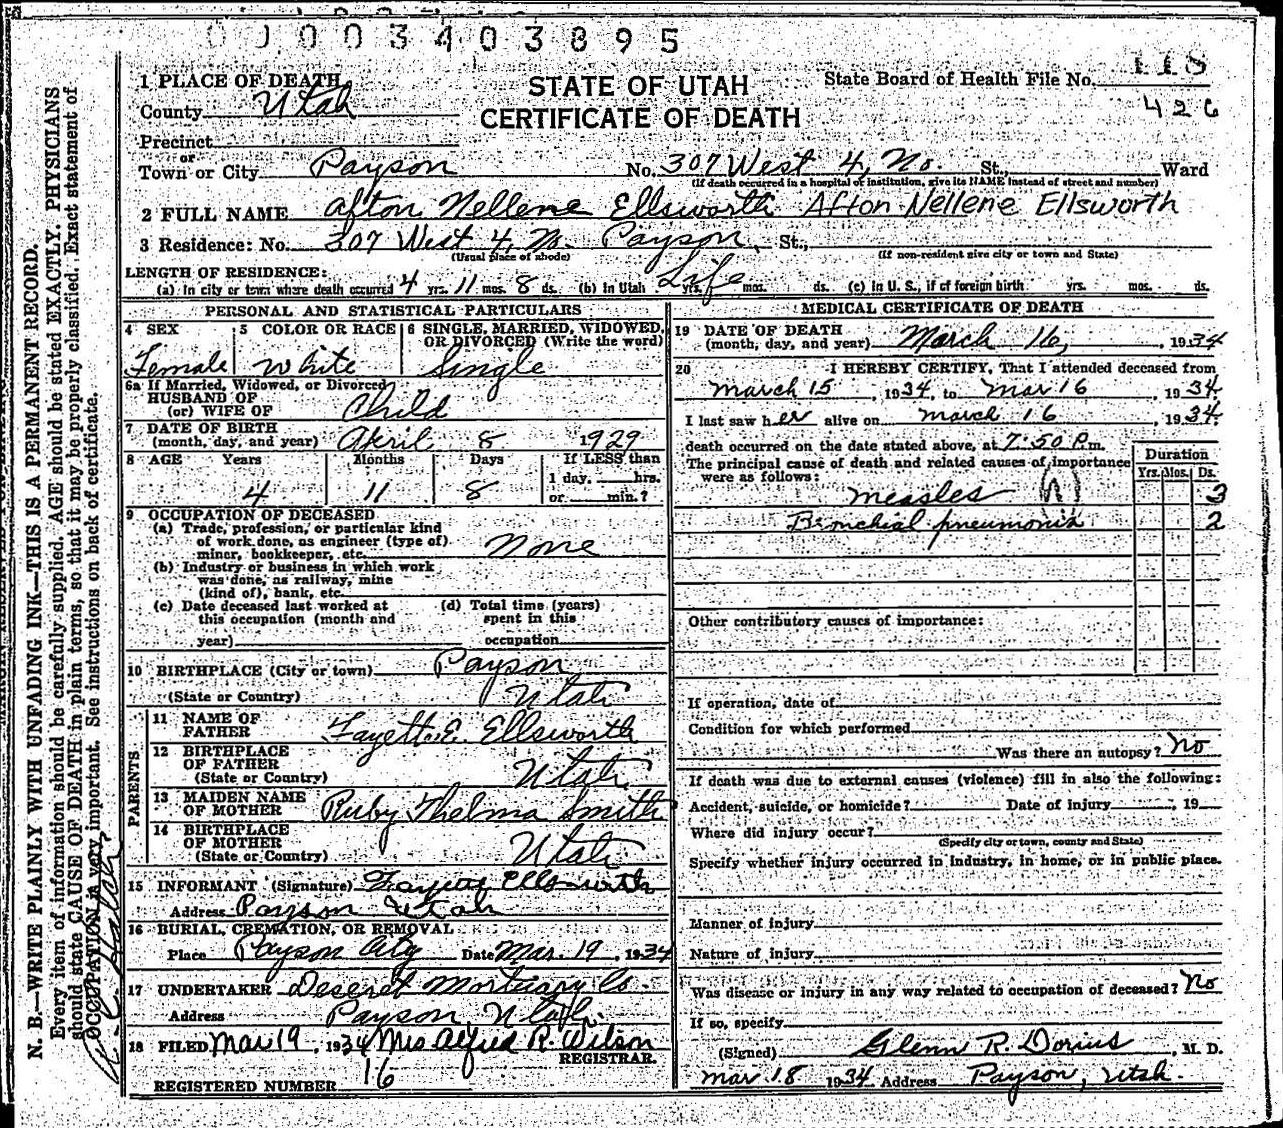 00003403895
STATE OF UTAH
CERTIFICATE OF DEATH
State Board of Health File No. 118
426
1 PLACE OF DEATH
County Utah
Precinct
or
Town or City Payson No. 307 West 4, No. St., Ward
(If death occurred in a hospital or institution, give its NAME instead of street and number)
2 FULL NAME Afton Nellene Ellsworth Afton Nellene Ellsworth
3 Residence: No. 307 West 4, No. Payson, St.,
(Usual place of abode) (If non-resident give city or town and State)
LENGTH OF RESIDENCE:
(a) In city or town where death occurred 4 yrs. 11 mos. 8 ds. (b) In Utah Life yrs. mos. ds. (c) In U. S., if of foreign birth yrs. mos. ds.
PERSONAL AND STATISTICAL PARTICULARS
4 SEX
Female
5 COLOR OR RACE
White
6 SINGLE, MARRIED, WIDOWED,
OR DIVORCED (Write the word)
Single
6a If Married, Widowed, or Divorced
HUSBAND OF
(or) WIFE OF Child
7 DATE OF BIRTH
(month, day, and year) April 8 1929
8 AGE Years Months Days If LESS than
1 day, hrs.
4 11 8 or min.?
9 OCCUPATION OF DECEASED
(a) Trade, profession, or particular kind
of work done, as engineer (type of)
miner, bookkeeper, etc. None
(b) Industry or business in which work
was done, as railway, mine
(kind of), bank, etc.
(c) Date deceased last worked at
this occupation (month and
year)
(d) Total time (years)
spent in this
occupation
10 BIRTHPLACE (City or town) Payson
(State or Country) Utah
PARENTS
11 NAME OF
FATHER Fayette E. Ellsworth
12 BIRTHPLACE
OF FATHER
(State or Country) Utah
13 MAIDEN NAME
OF MOTHER Ruby Thelma Smith
14 BIRTHPLACE
OF MOTHER
(State or Country) Utah
15 INFORMANT (Signature) Fayette Ellsworth
Address Payson Utah
16 BURIAL, CREMATION, OR REMOVAL
Place Payson City Date Mar. 19, 1934
17 UNDERTAKER Deseret Mortuary Co.
Address Payson Utah.
18 FILED Mar 19, 1934 Mrs Alfred R. Wilson
REGISTRAR.
REGISTERED NUMBER 16
MEDICAL CERTIFICATE OF DEATH
19 DATE OF DEATH
(month, day, and year) March 16, , 1934
20 I HEREBY CERTIFY, That I attended deceased from
March 15, 1934, to Mar 16, 1934.
I last saw her alive on March 16, 1934.
death occurred on the date stated above, at 7:50 P.m.
The principal cause of death and related causes of importance
were as follows:
Duration
Yrs. Mos. Ds.
Measles 3
Bronchial pneumonia 2
Other contributory causes of importance:
If operation, date of
Condition for which performed
Was there an autopsy? No
If death was due to external causes (violence) fill in also the following:
Accident, suicide, or homicide? Date of injury , 19
Where did injury occur?
(Specify city or town, county and State)
Specify whether injury occurred in industry, in home, or in public place.
Manner of injury
Nature of injury
Was disease or injury in any way related to occupation of deceased? No
If so, specify
(Signed) Glenn R. Dorius, M. D.
Mar. 18 1934 Address Payson, Utah.
N. B.—WRITE PLAINLY WITH UNFADING INK—THIS IS A PERMANENT RECORD.
Every item of information should be carefully supplied. AGE should be stated EXACTLY. PHYSICIANS
should state CAUSE OF DEATH in plain terms, so that it may be properly classified. Exact statement of
OCCUPATION is very important. See instructions on back of certificate.